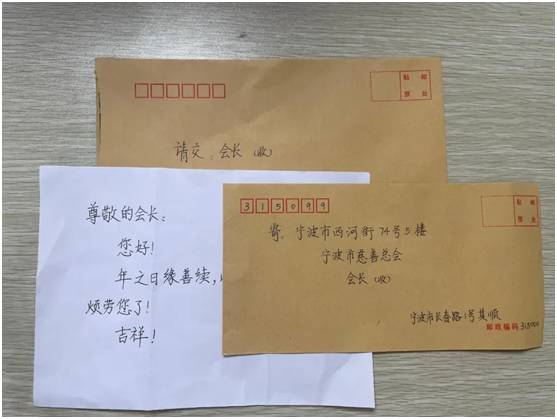 贴 邮
票 处
请交:会长(收)
尊敬的会长:
您好!
年之日缘善续,
烦劳您了!
吉祥!
315099
贴 邮
票 处
寄:宁波市西河街74号5楼
宁波市慈善总会
会长(收)
宁波市长春路1号其顺
邮政编码 315000